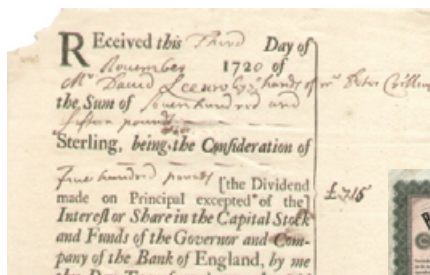 REceived this Third Day of
November 1720 of
Mr. David Leeuw by ye hands of mr. Peter
the Sum of Seven hundred and
fifteen pounds
Sterling, being the Consideration of
Five hundred pounds [the Dividend
made on Principal excepted of the]
Interest or Share in the Capital Stock £715
and Funds of the Governor and Com-
pany of the Bank of England, by me